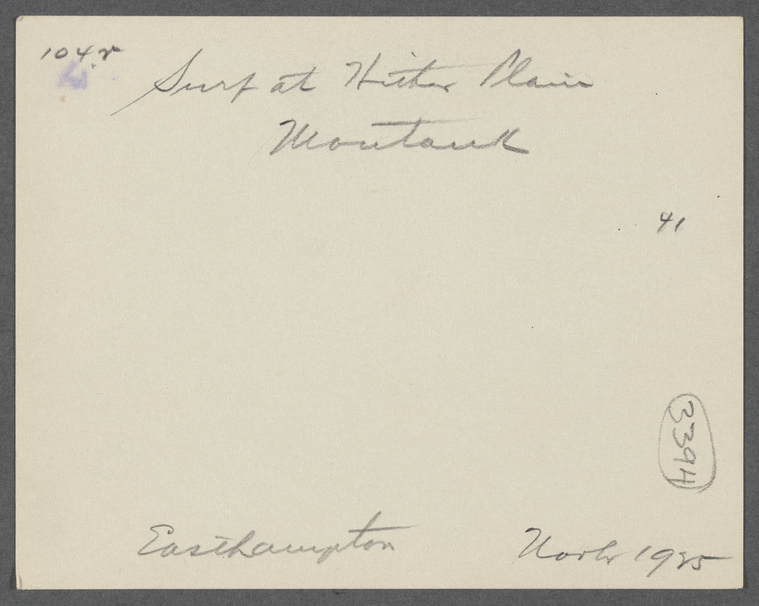 104 r
Surf at Hither Plain
Montauk
41
3394
Easthampton
Novbr 1925